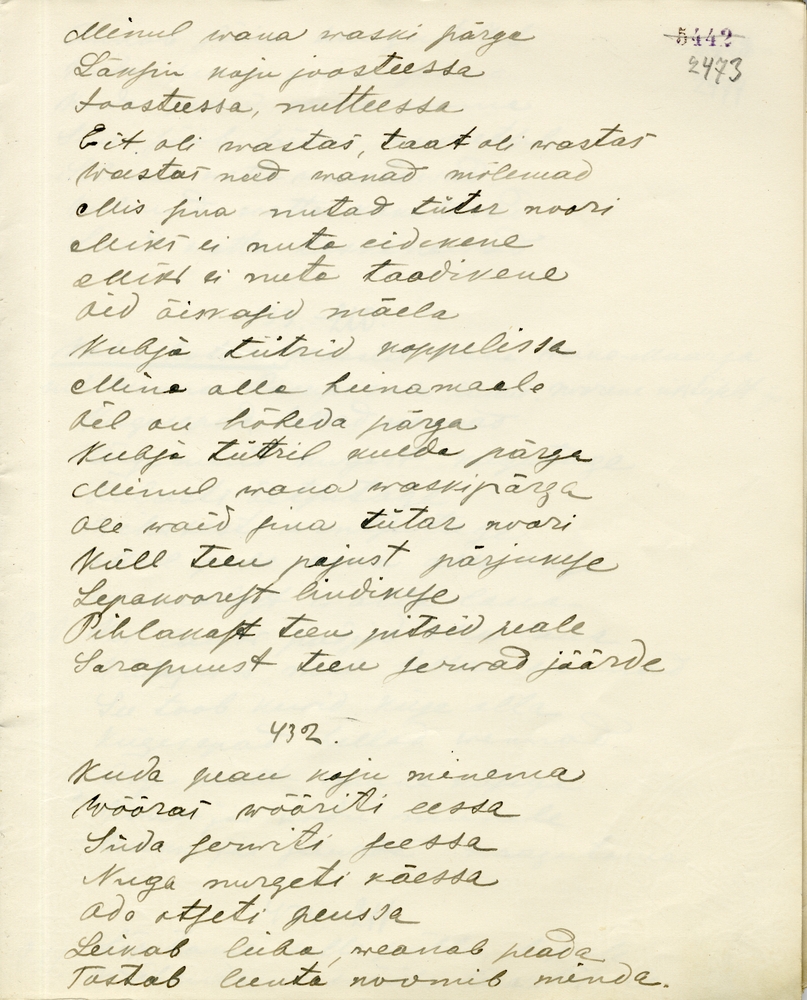 Minul wana waski pärga
5442
2473
Läksin koju joosteessa
Joosteessa, nutteessa
Eit oli wastas, taat oli wastas
Wastas need wanad mõlemad
Mis sina nutad tütar noori
Miks ei nuta eidekene
Miks ei nuta taadikene
Õed õiskasid mäela
Kubja tütrid koppelissa
Mina alla heinamaale
Õel on hõbeda pärga
Kubja tütril kulda pärga
Minul wana waskipärga
Ole waid sina tütar noori
Küll teen pajust pärjukese
Lepakoorest lindikese
Pihlakast teen pitsid peale
Sarapuust teen serwad jäärde
432.
Kuda pean koju minema
Wööras wööriti eessa
Süda serwiti seessa
Nuga nurgeti käessa
Ado otseti peussa
Leikab leiba, weanab peada
Tostab lienta noomib minda.